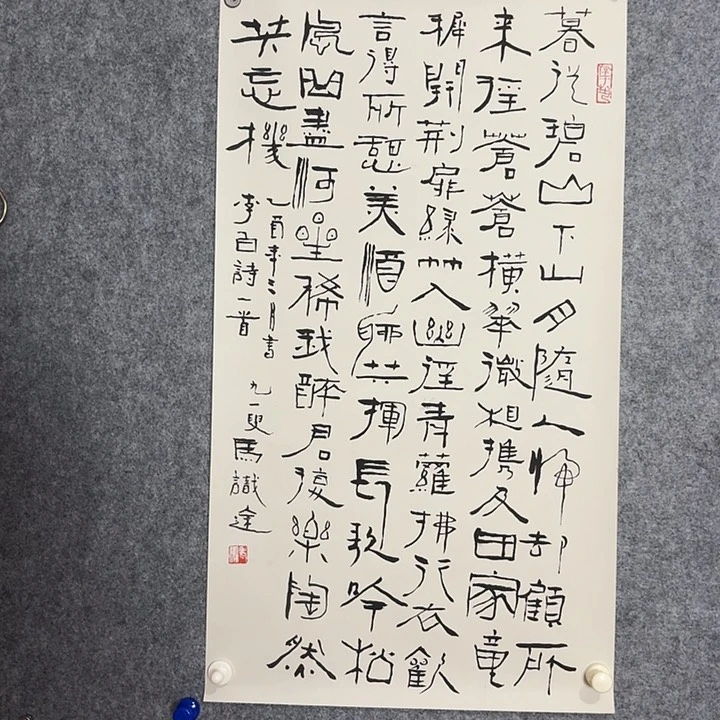 暮從碧山下山月隨人歸却顧所
来徑蒼蒼橫翠微相携及田家童
穉開荊扉綠竹入幽徑青蘿拂行衣歡
言得所憩美酒聊共揮長歌吟松
風曲盡河星稀我醉君復樂陶然
共忘機
乙酉年三月書
李白詩一首
九一叟馬識途